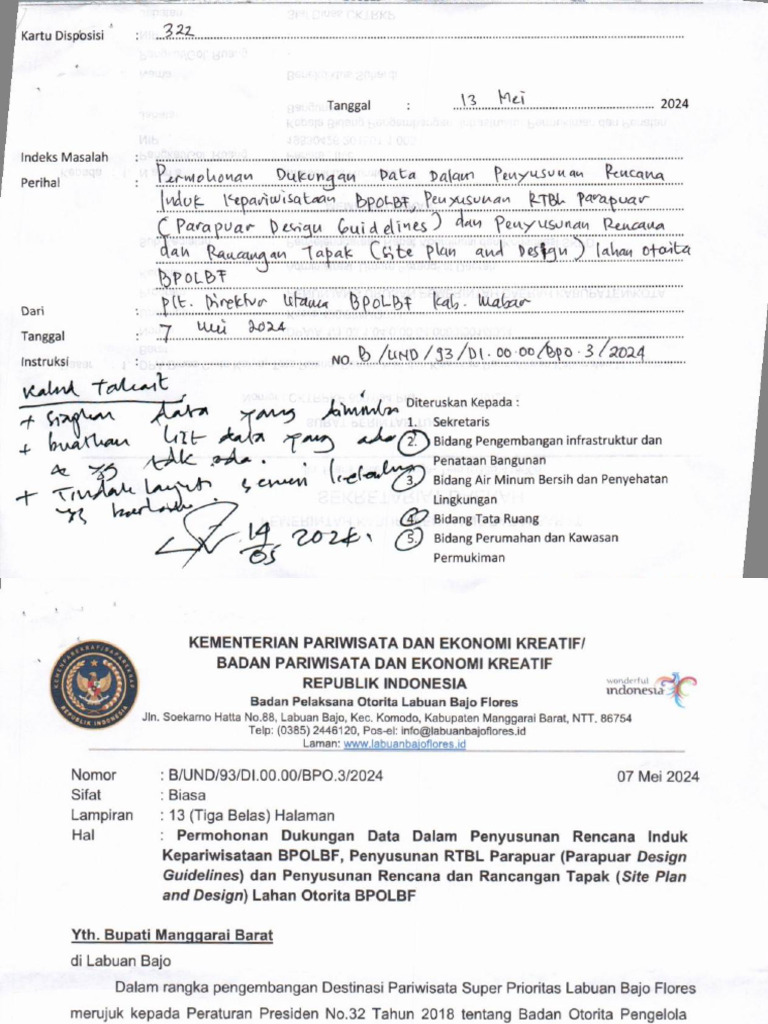 Kartu Disposisi : 322
Tanggal : 13 Mei 2024
Indeks Masalah :
Perihal : Permohonan Dukungan Data Dalam Penyusunan Rencana
Induk Kepariwisataan BPOLBF, Penyusunan RTBL Parapuar
(Parapuar Design Guidelines) dan Penyusunan Rencana
dan Rancangan Tapak (Site Plan and Design) lahan otorita
BPOLBF
Dari : Plt. Direktur Utama BPOLBF Kab. Mabar
Tanggal : 7 Mei 2024
Instruksi : NO. B/UND/93/DI.00.00/BPO.3/2024
Kabid Terkait
+ siapkan data yang diminta
+ buatkan list data yang ada
& yg tdk ada.
+ Tindak lanjuti sesuai
yg
14/05 2024.
Diteruskan Kepada :
1. Sekretaris
2. Bidang Pengembangan infrastruktur dan
Penataan Bangunan
3. Bidang Air Minum Bersih dan Penyehatan
Lingkungan
4. Bidang Tata Ruang
5. Bidang Perumahan dan Kawasan
Permukiman
KEMENTERIAN PARIWISATA DAN EKONOMI KREATIF/
BADAN PARIWISATA DAN EKONOMI KREATIF
REPUBLIK INDONESIA
Badan Pelaksana Otorita Labuan Bajo Flores
Jln. Soekarno Hatta No.88, Labuan Bajo, Kec. Komodo, Kabupaten Manggarai Barat, NTT. 86754
Telp: (0385) 2446120, Pos-el: info@labuanbajoflores.id
Laman: www.labuanbajoflores.id
wonderful
indonesia
REPUBLIK INDONESIA
Nomor : B/UND/93/DI.00.00/BPO.3/2024 07 Mei 2024
Sifat : Biasa
Lampiran : 13 (Tiga Belas) Halaman
Hal : Permohonan Dukungan Data Dalam Penyusunan Rencana Induk
Kepariwisataan BPOLBF, Penyusunan RTBL Parapuar (Parapuar Design
Guidelines) dan Penyusunan Rencana dan Rancangan Tapak (Site Plan
and Design) Lahan Otorita BPOLBF
Yth. Bupati Manggarai Barat
di Labuan Bajo
Dalam rangka pengembangan Destinasi Pariwisata Super Prioritas Labuan Bajo Flores
merujuk kepada Peraturan Presiden No.32 Tahun 2018 tentang Badan Otorita Pengelola